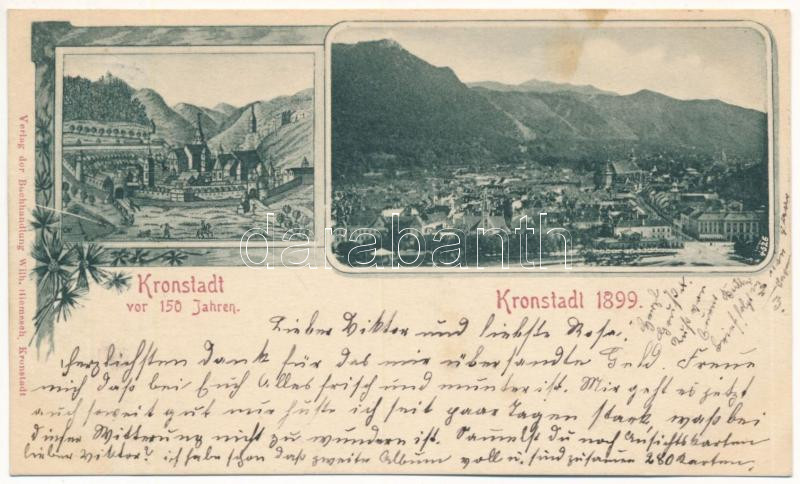 Verlag der Buchhandlung Wilh. Hiemesch, Kronstadt
Kronstadt
vor 150 Jahren.
Kronstadt 1899.
4526
darabanth
Lieber Viktor und liebste Rosa,
herzlichsten dank für das mir übersandte Geld. Freue
mich daß bei Euch Alles frisch und munter ist. Mir geht es jetzt
auch soweit gut nur huste ich seit paar Tagen stark, waß bei
dieser Witterung nicht zu wundern ist. Sammelst du noch Ansichtskarten
lieber Viktor? ich habe schon daß zweite Album voll u. sind zusamen 280 Karten.